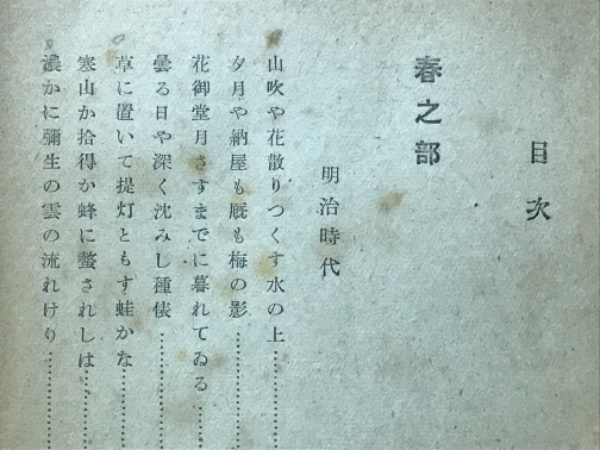 目次
春之部
明治時代
山吹や花散りつくす水の上
夕月や納屋も厩も梅の影
花御堂月さすまでに暮れてゐる
曇る日や深く沈みし種俵
草に置いて提灯ともす蛙かな
寒山か拾得か蜂に螫されしは
濃かに彌生の雲の流れけり